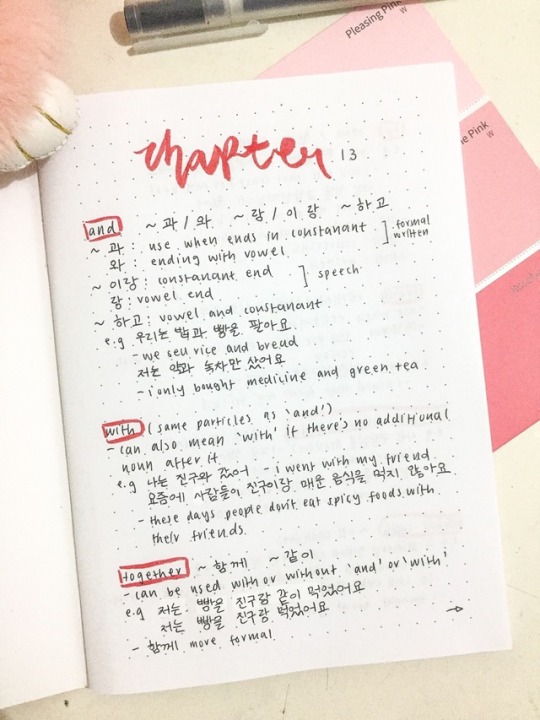 Pleasing Pink
W
ne Pink
W
chapter 13
and ~과/와 ~랑/이랑 ~하고
~과: use when ends in constanant ] formal
와: ending with vowel ] written
~이랑: constanant end ] speech
랑: vowel end
~하고: vowel and constanant
e.g 우리는 밥과 빵을 팔아요
- we sell rice and bread
저는 약과 녹차만 샀어요
- i only bought medicine and green tea
with (same particles as 'and')
- can also mean 'with' if there's no additional
noun after it
e.g 나는 친구와 갔어 - i went with my friend
요즘에 사람들이 친구이랑 매운 음식을 먹지 않아요
- these days people don't eat spicy foods with
their friends
together ~함께 ~같이
- can be used with or without 'and' or 'with'
e.g 저는 빵을 친구랑 같이 먹었어요
저는 빵을 친구랑 먹었어요
- 함께 more formal